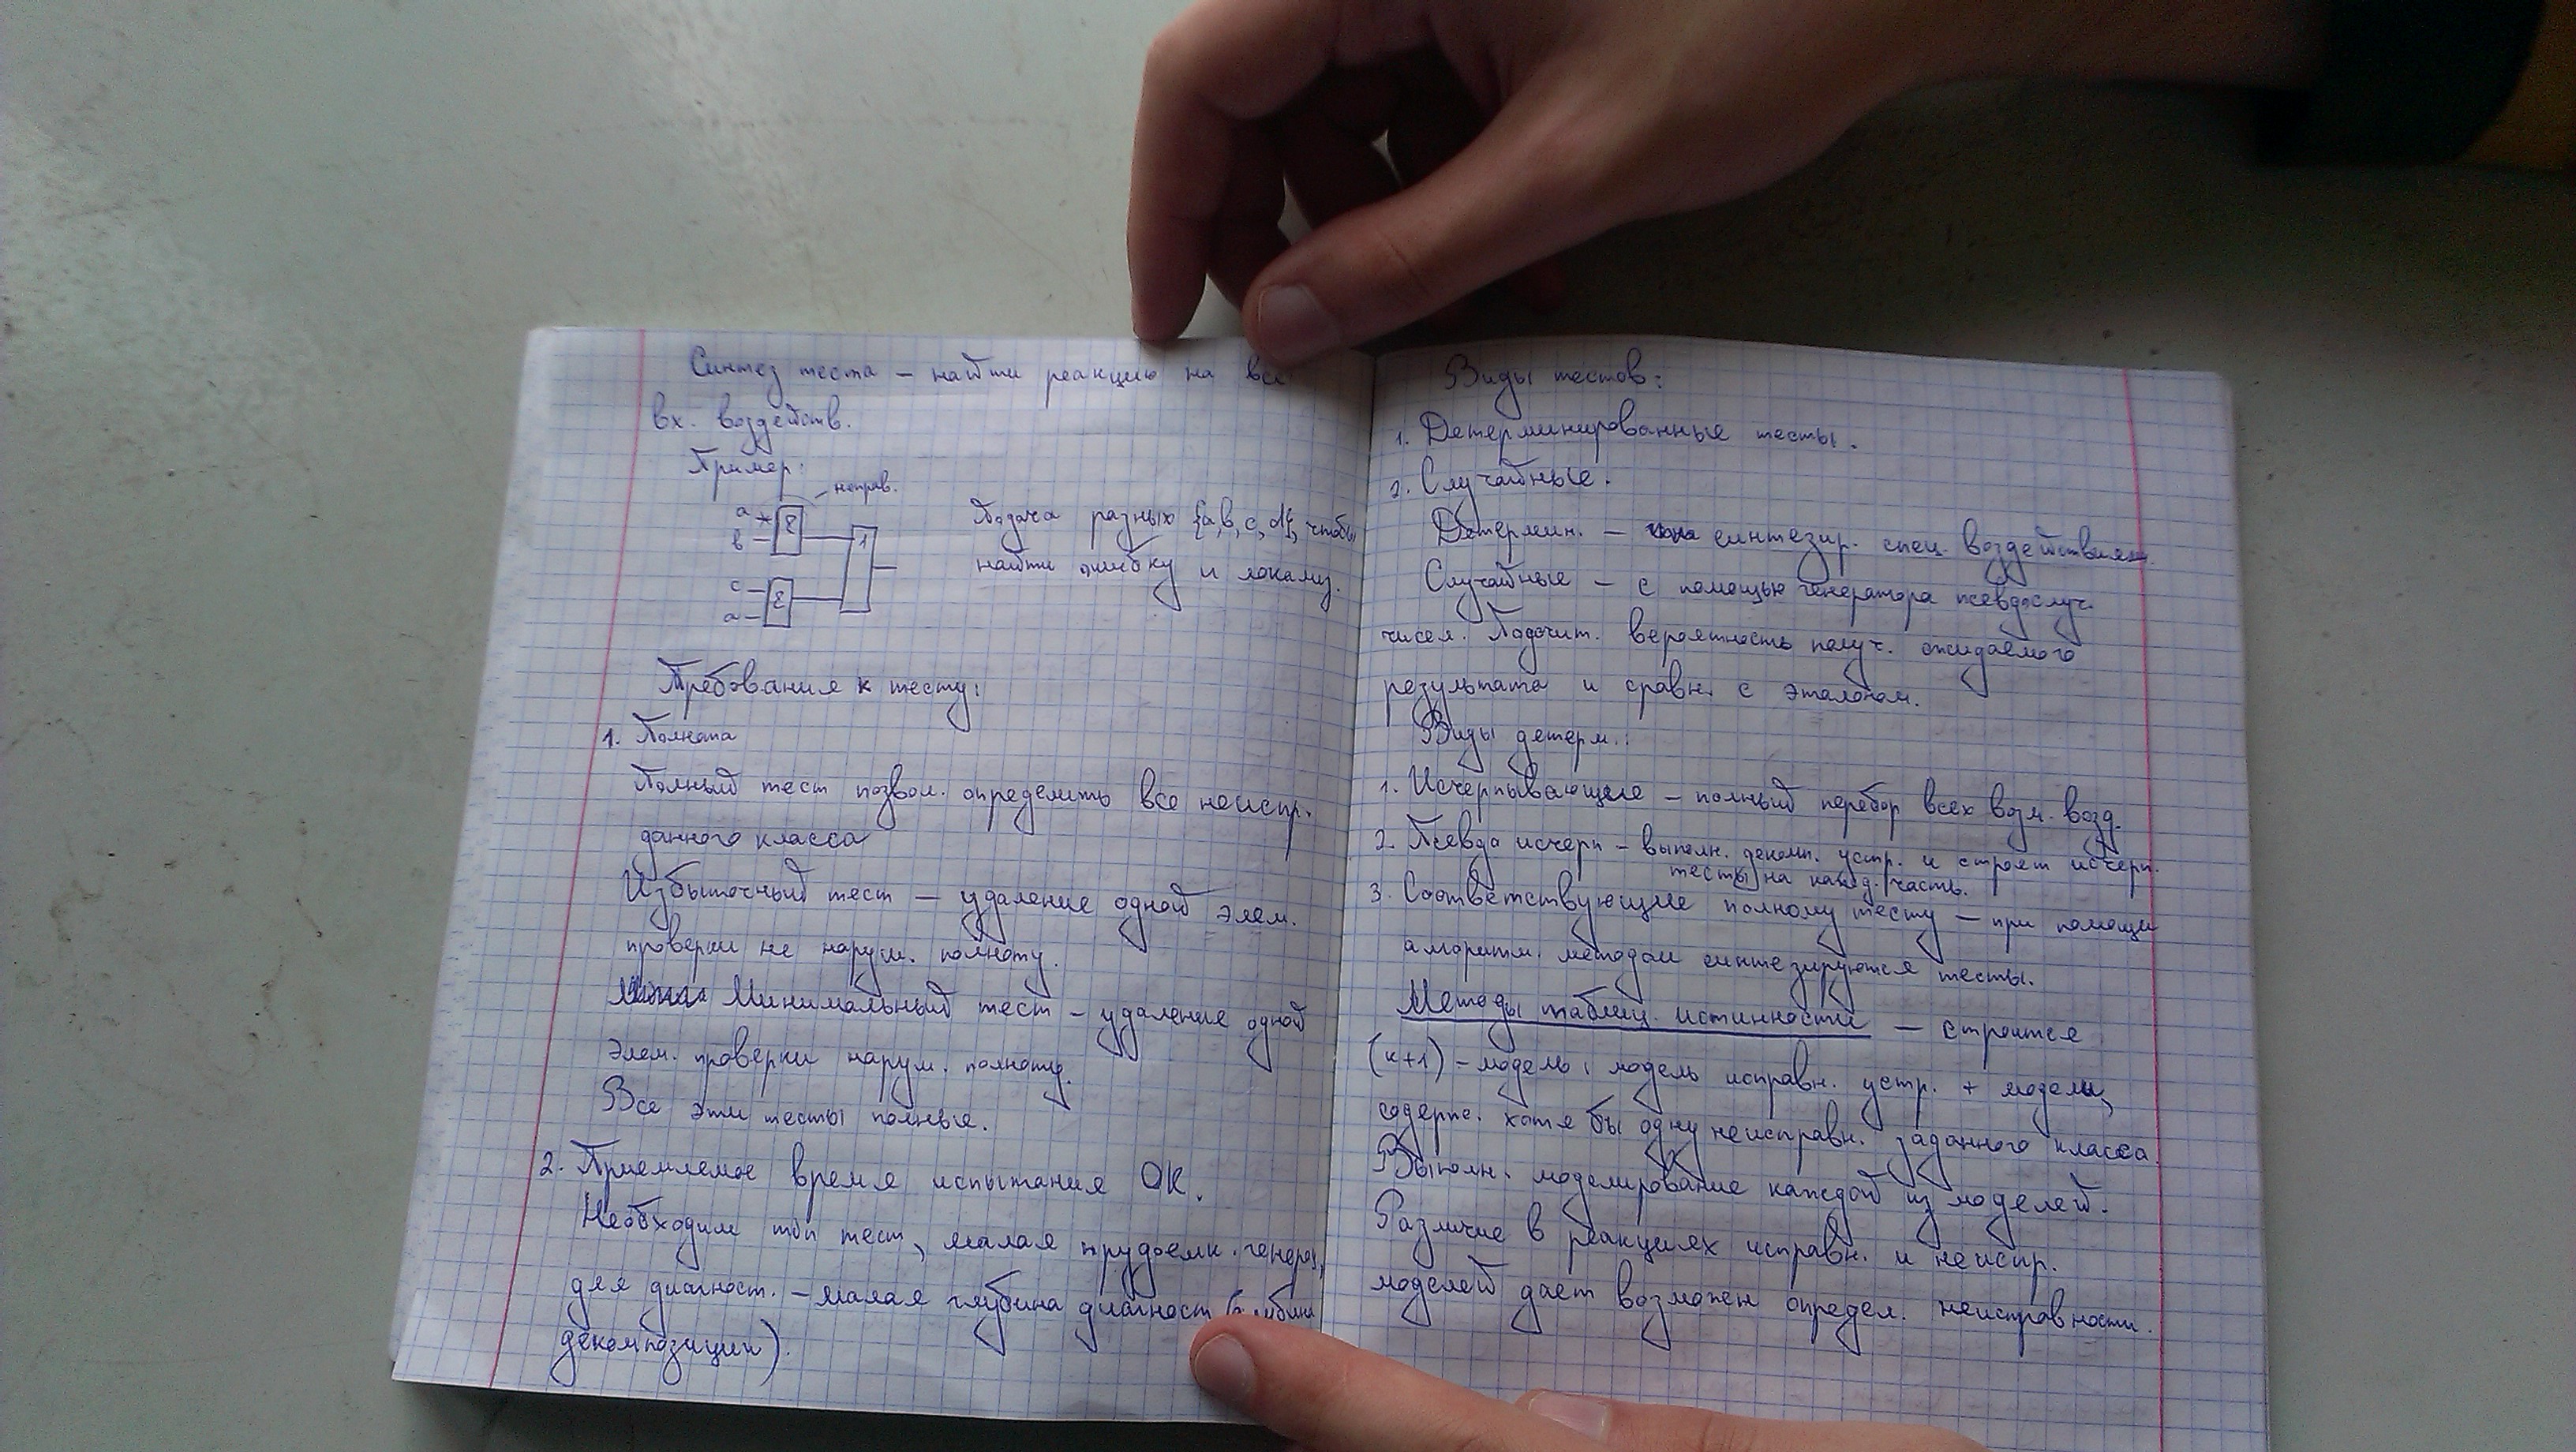 Синтез теста – найти реакцию на все
вх. воздейств.
Пример:
неправ.
a
в
c
a
&
&
1
Подача разных {a, в, c, d}, чтобы
найти ошибку и локализ.
Требования к тесту:
1. Полнота
Полный тест позвол. определить все неиспр.
данного класса
Избыточный тест – удаление одной элем.
проверки не наруш. полноту.
Минимальный тест – удаление одной
элем. проверки наруш. полноту.
Все эти тесты полные.
2. Приемлемое время испытания ОК.
Необходим тест, малая трудоемк. генерац,
для диагност. – малая глубина диагност (глубина
декомпозиции).
Виды тестов:
1. Детерминированные тесты.
2. Случайные.
Детермин. – синтезир. спец. воздействиям.
Случайные – с помощью генератора псевдослуч.
чисел. Подсчит. вероятность получ. ожидаемого
результата и сравн. с эталоном.
Виды детерм.:
1. Исчерпывающие – полный перебор всех возм. возд.
2. Псевдо исчерп – выполн. декомп. устр. и строят исчерп.
тесты на кажд. часть.
3. Соответствующие полному тесту – при помощи
алгоритм. методом синтезируются тесты.
Методы таблиц истинности – строится
(к+1) – модель, модель исправн. устр. + модели,
содерж. хотя бы одну неисправн. заданного класса.
Выполн. моделирование каждой из моделей.
Различие в реакциях исправн. и неиспр.
моделей дает возможн определ. неисправности.